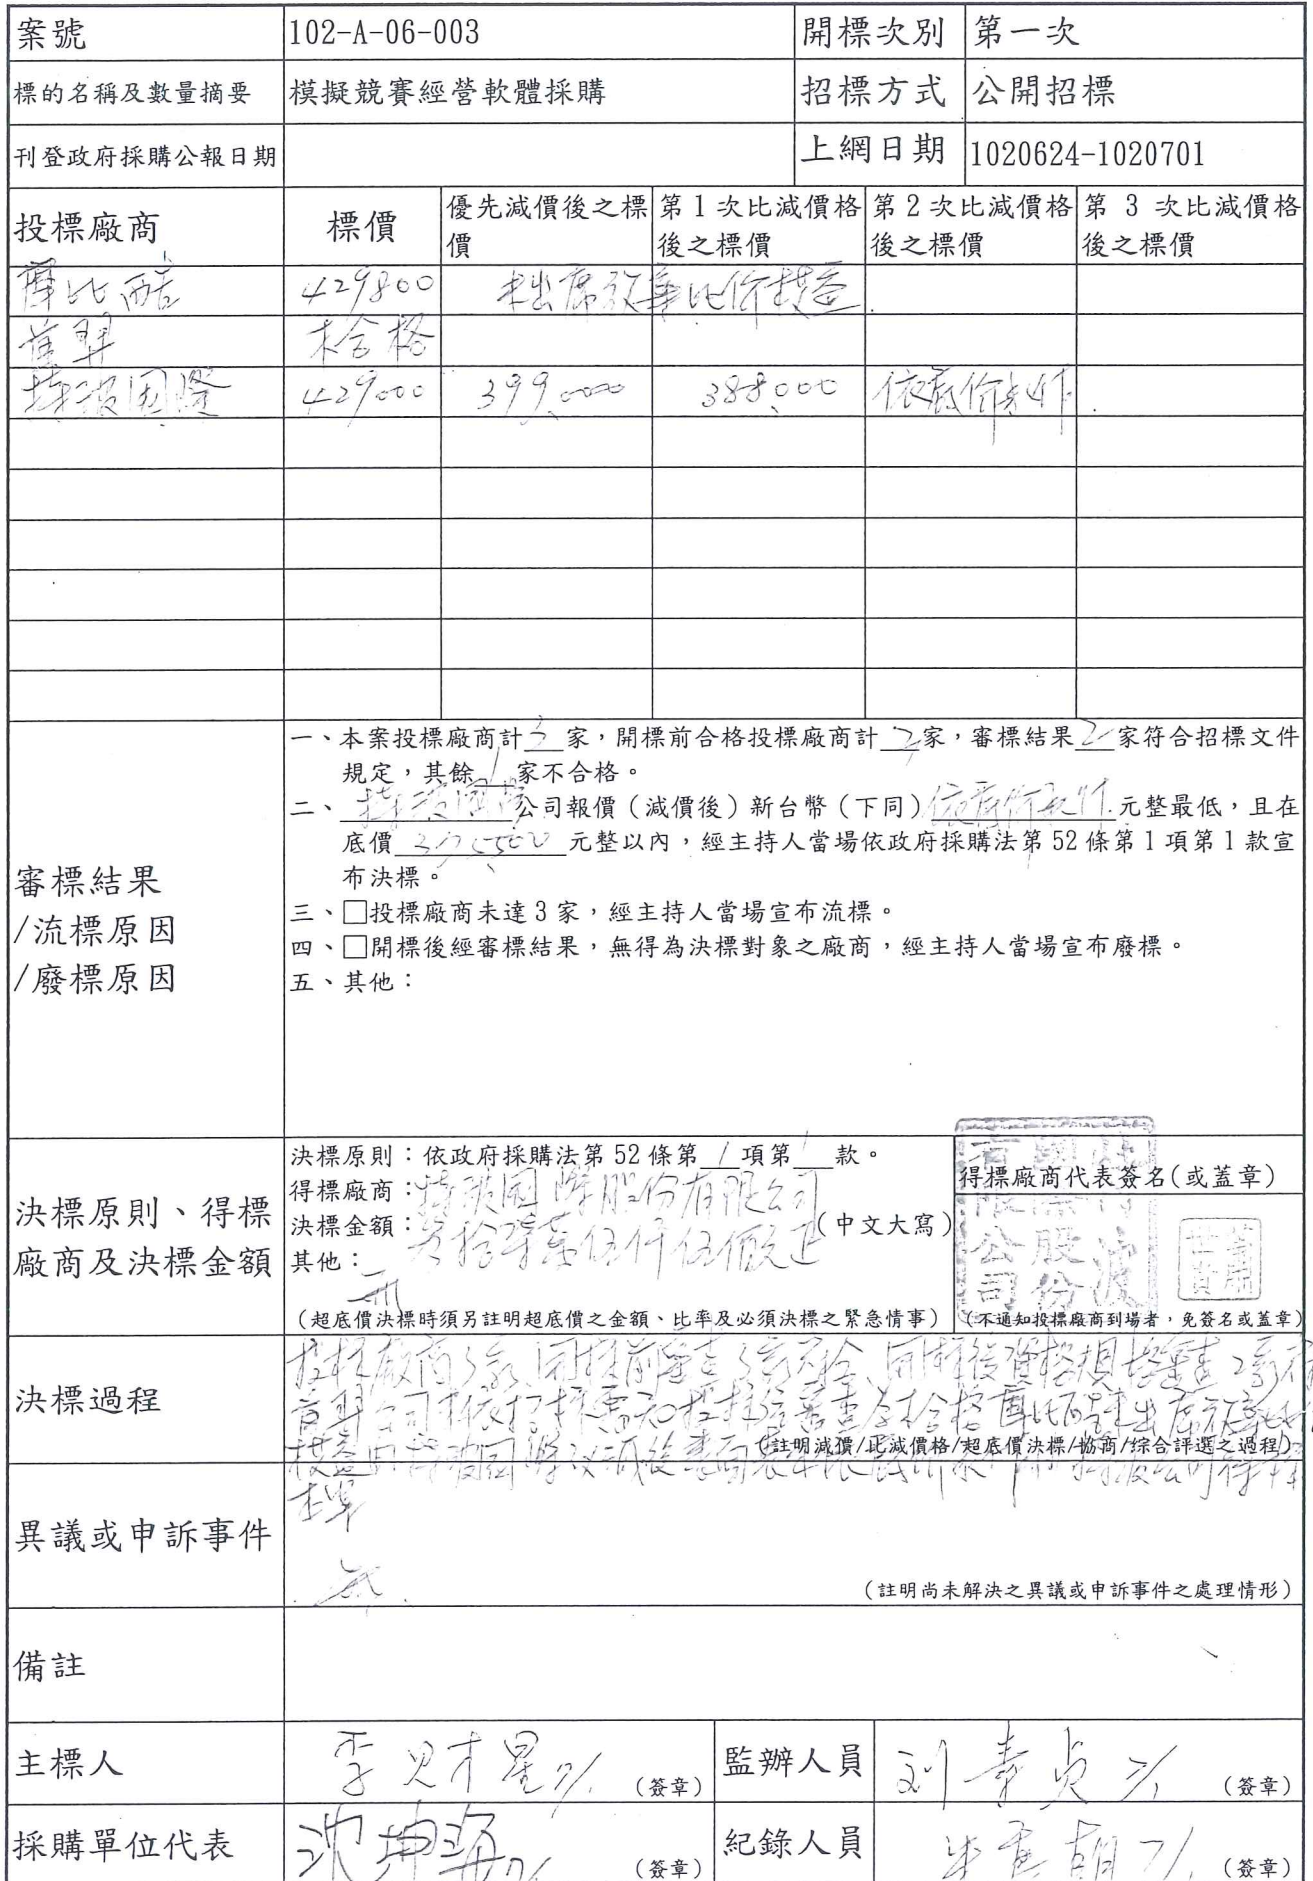 案號 102-A-06-003 開標次別 第一次
標的名稱及數量摘要 模擬競賽經營軟體採購 招標方式 公開招標
刊登政府採購公報日期 上網日期 1020624-1020701
投標廠商 標價 優先減價後之標價 第1次比減價格後之標價 第2次比減價格後之標價 第3次比減價格後之標價
摩比酷 429800 未出席放棄比價權益
不合格
特波國際 429000 399,000 388,000 依底價承作
審標結果
/流標原因
/廢標原因
一、本案投標廠商計 3 家,開標前合格投標廠商計 2 家,審標結果 2 家符合招標文件
規定,其餘 1 家不合格。
二、特波國際公司報價(減價後)新台幣(下同)依底價承作元整最低,且在
底價 375500 元整以內,經主持人當場依政府採購法第52條第1項第1款宣
布決標。
三、□投標廠商未達3家,經主持人當場宣布流標。
四、□開標後經審標結果,無得為決標對象之廠商,經主持人當場宣布廢標。
五、其他:
決標原則、得標
廠商及決標金額
決標原則:依政府採購法第52條第 1 項第 1 款。
得標廠商:特波國際股份有限公司
決標金額:參拾柒萬伍仟伍佰元正(中文大寫)
其他:
無
(超底價決標時須另註明超底價之金額、比率及必須決標之緊急情事)
得標廠商代表簽名(或蓋章)
特波國際股份有限公司
(不通知投標廠商到場者,免簽名或蓋章)
決標過程
投標廠商3家、開標前審查
(註明減價/比減價格/超底價決標/協商/綜合評選之過程)
異議或申訴事件
無
(註明尚未解決之異議或申訴事件之處理情形)
備註
主標人 李財星 (簽章) 監辦人員 (簽章)
採購單位代表 沈坤海 (簽章) 紀錄人員 (簽章)